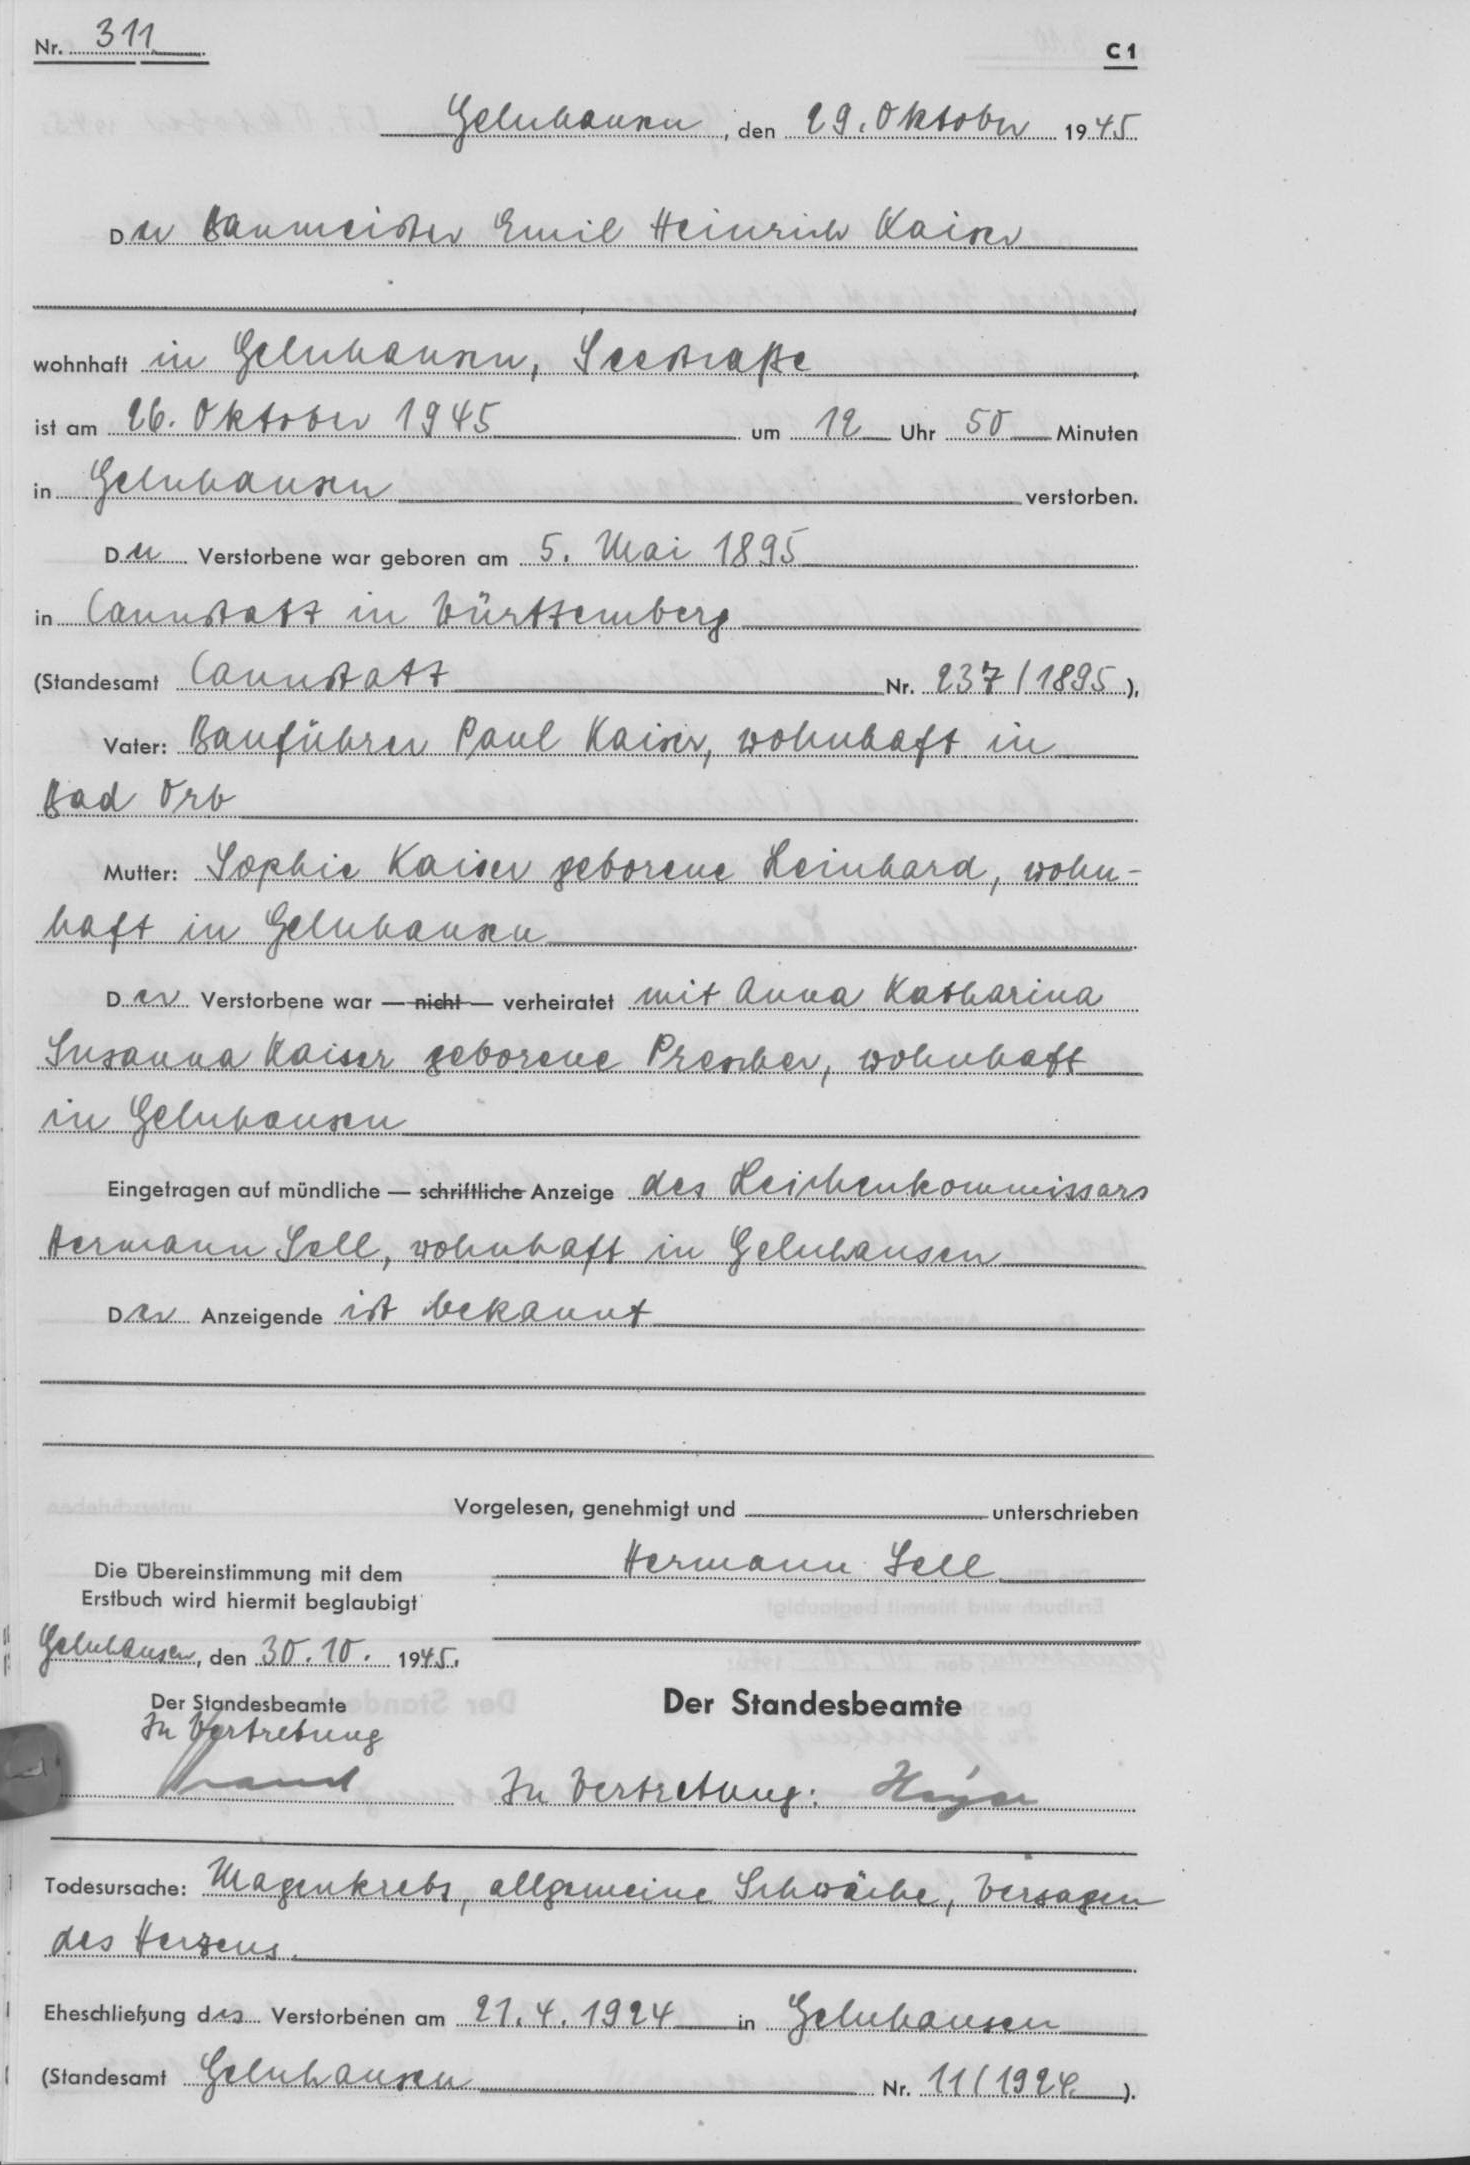 Nr. 311
C 1
Gelnhausen, den 29. Oktober 1945
Der Baumeister Emil Heinrich Kaiser
wohnhaft in Gelnhausen, Seestraße
ist am 26. Oktober 1945 um 12 Uhr 50 Minuten
in Gelnhausen verstorben.
Der Verstorbene war geboren am 5. Mai 1895
in Cannstatt in Württemberg
(Standesamt Cannstatt Nr. 237/1895).
Vater: Bauführer Paul Kaiser, wohnhaft in
Bad Orb
Mutter: Sophie Kaiser geborene Leinhard, wohn-
haft in Gelnhausen
Der Verstorbene war — nicht — verheiratet mit Anna Katharina
Susanna Kaiser geborene Prescher, wohnhaft
in Gelnhausen
Eingetragen auf mündliche — schriftliche Anzeige des Leichenkommissars
Hermann Sell, wohnhaft in Gelnhausen
Der Anzeigende ist bekannt
Vorgelesen, genehmigt und unterschrieben
Hermann Sell
Die Übereinstimmung mit dem
Erstbuch wird hiermit beglaubigt
Gelnhausen, den 30.10. 1945.
Der Standesbeamte
In Vertretung
Der Standesbeamte
In Vertretung:
Todesursache: Magenkrebs, allgemeine Schwäche, Versagen
des Herzens.
Eheschließung des Verstorbenen am 21.4.1924 in Gelnhausen
(Standesamt Gelnhausen Nr. 11/1924).